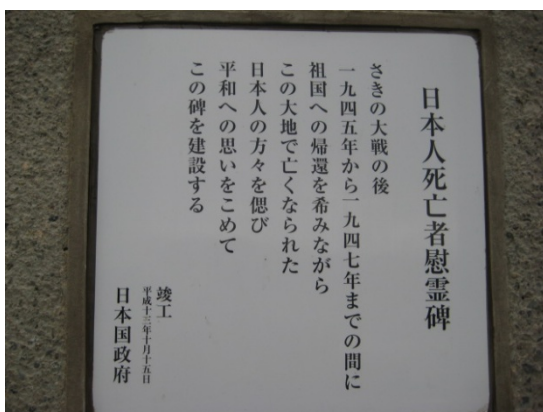 日本人死亡者慰霊碑
さきの大戦の後
一九四五年から一九四七年までの間に
祖国への帰還を希みながら
この大地で亡くなられた
日本人の方々を偲び
平和への思いをこめて
この碑を建設する
竣工
平成十三年十月十五日
日本国政府